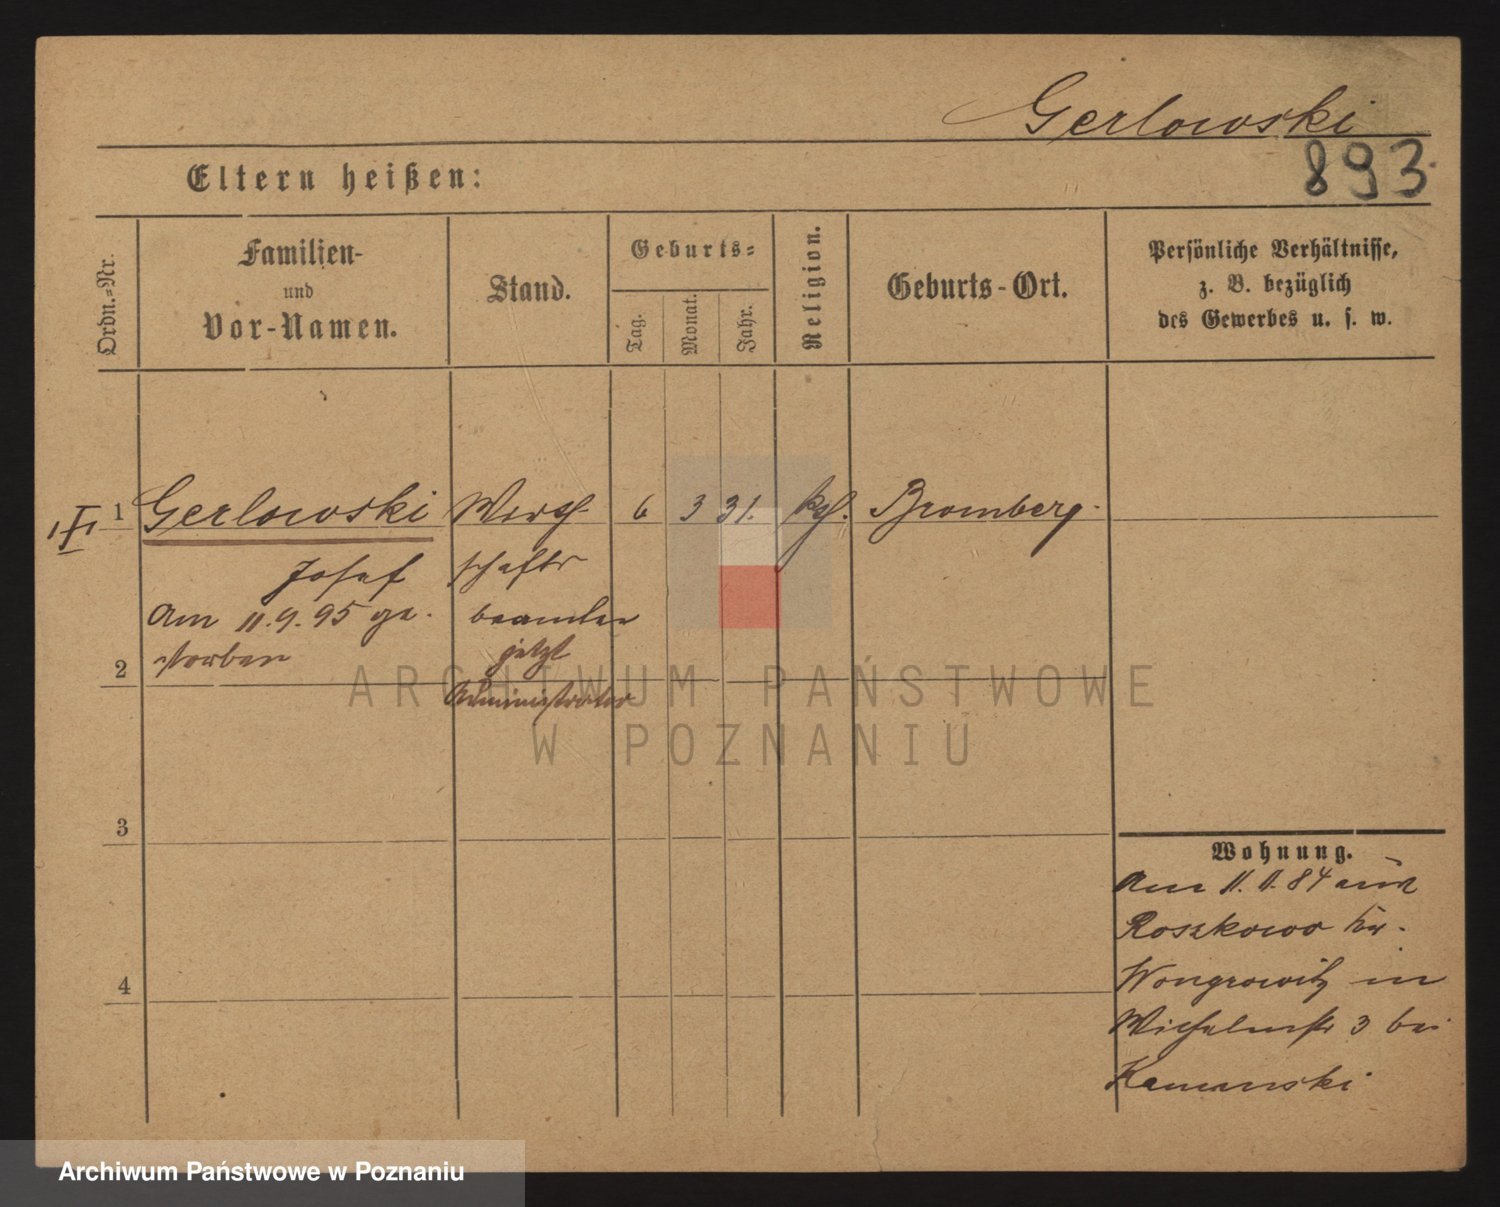 Gerlowski
893
Eltern heißen:
Ordn.=Nr.
Familien-
und
Vor-Namen.
Stand.
Geburts=
Tag.
Monat.
Jahr.
Religion.
Geburts-Ort.
Persönliche Verhältnisse,
z. B. bezüglich
des Gewerbes u. s. w.
1 Gerlowski Wirth- 6 3 31. Bromberg.
Josef schafts
Am 11.9.95 ge- beamter
storben jetzt
2
Administrator
ARCHIWUM PAŃSTWOWE
W POZNANIU
3
4
Wohnung.
Am 84 aus
Roszkowo Kr.
Wongrowitz in
Wilhelmstr 3 bei
Kamenski
Archiwum Państwowe w Poznaniu